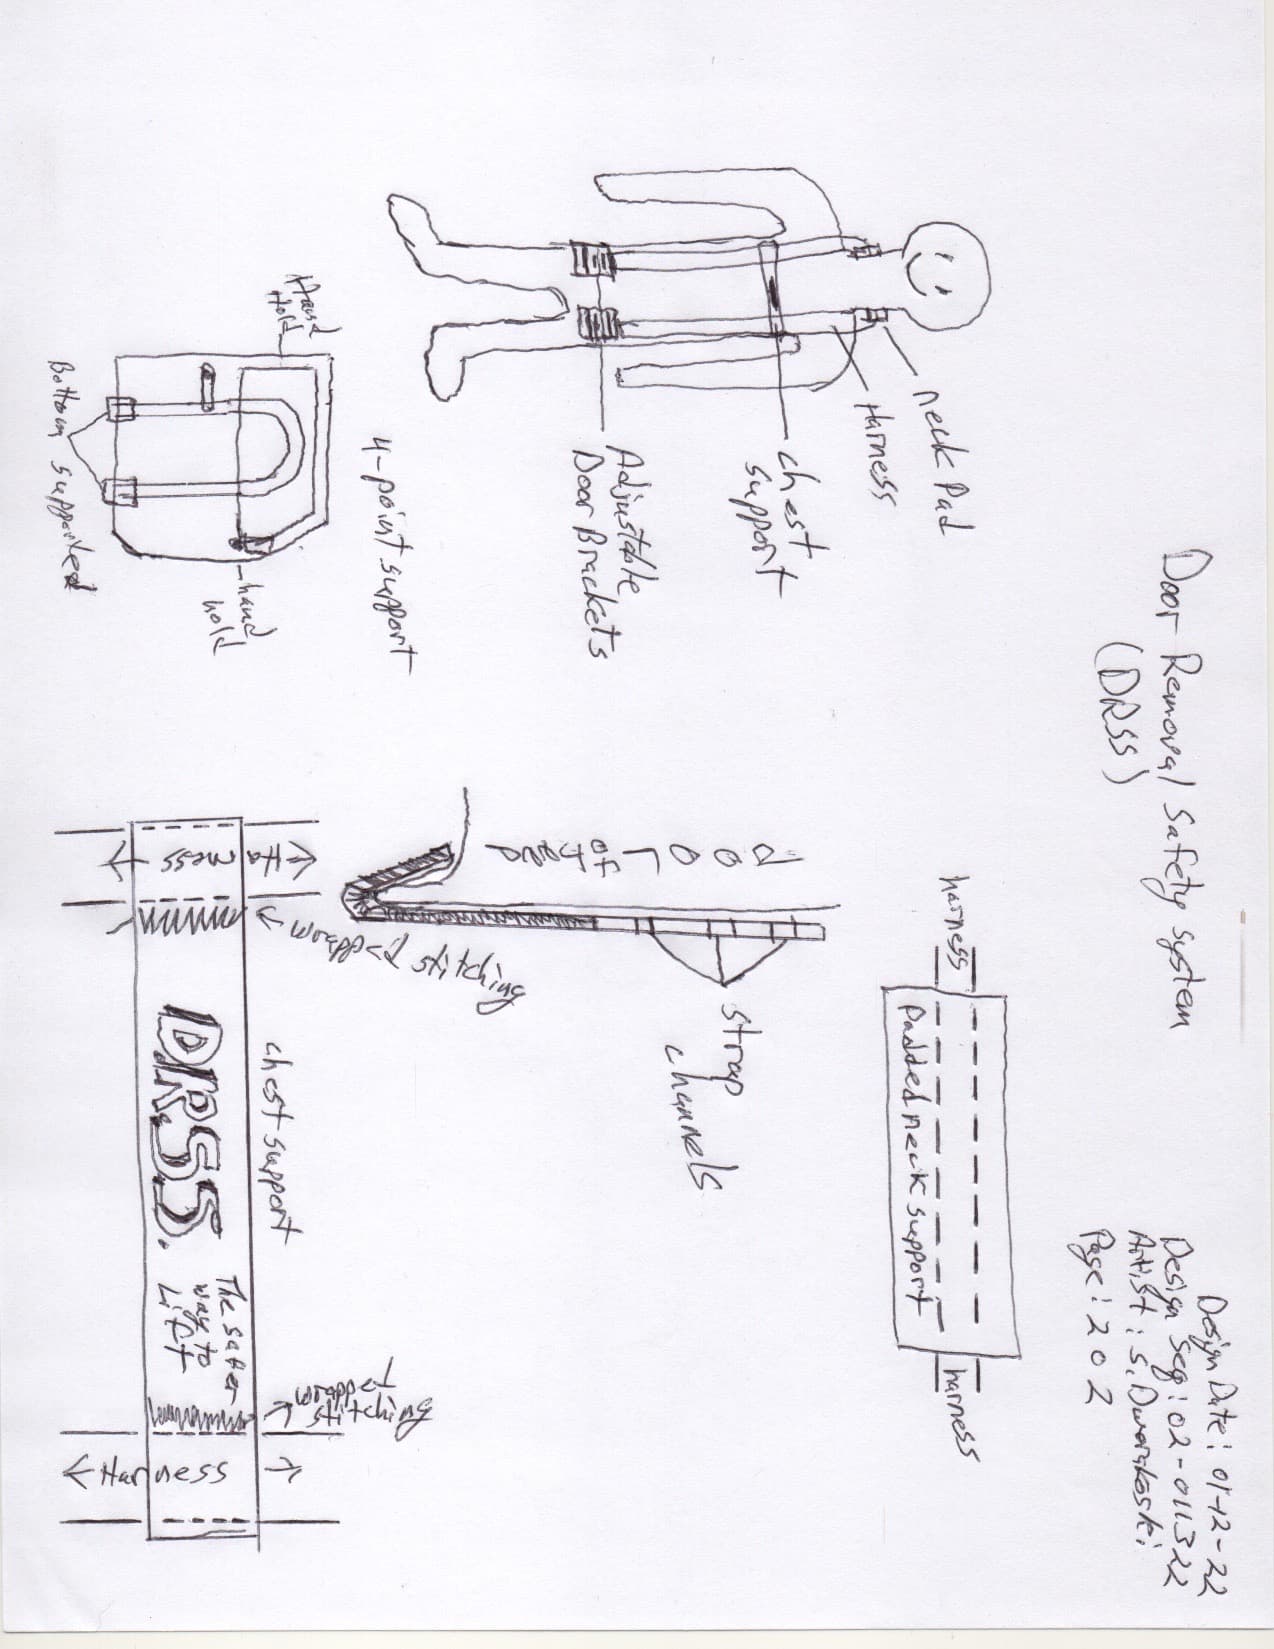 Door Removal Safety system
(DRSS)
Design Date: 01-12-22
Design Seg: 02-011322
Artist: S. Dworakoski
Page: 202
neck Pad
Harness
chest
support
Adjustable
Door Brackets
4-point support
Hand
Hold
hand
hold
Bottom supported
harness
Padded neck support
harness
strap
channels
DOOR
wrapped stitching
chest support
Harness
D.R.S.S.
The safer
way to
Lift
wrapped
stitching
Harness